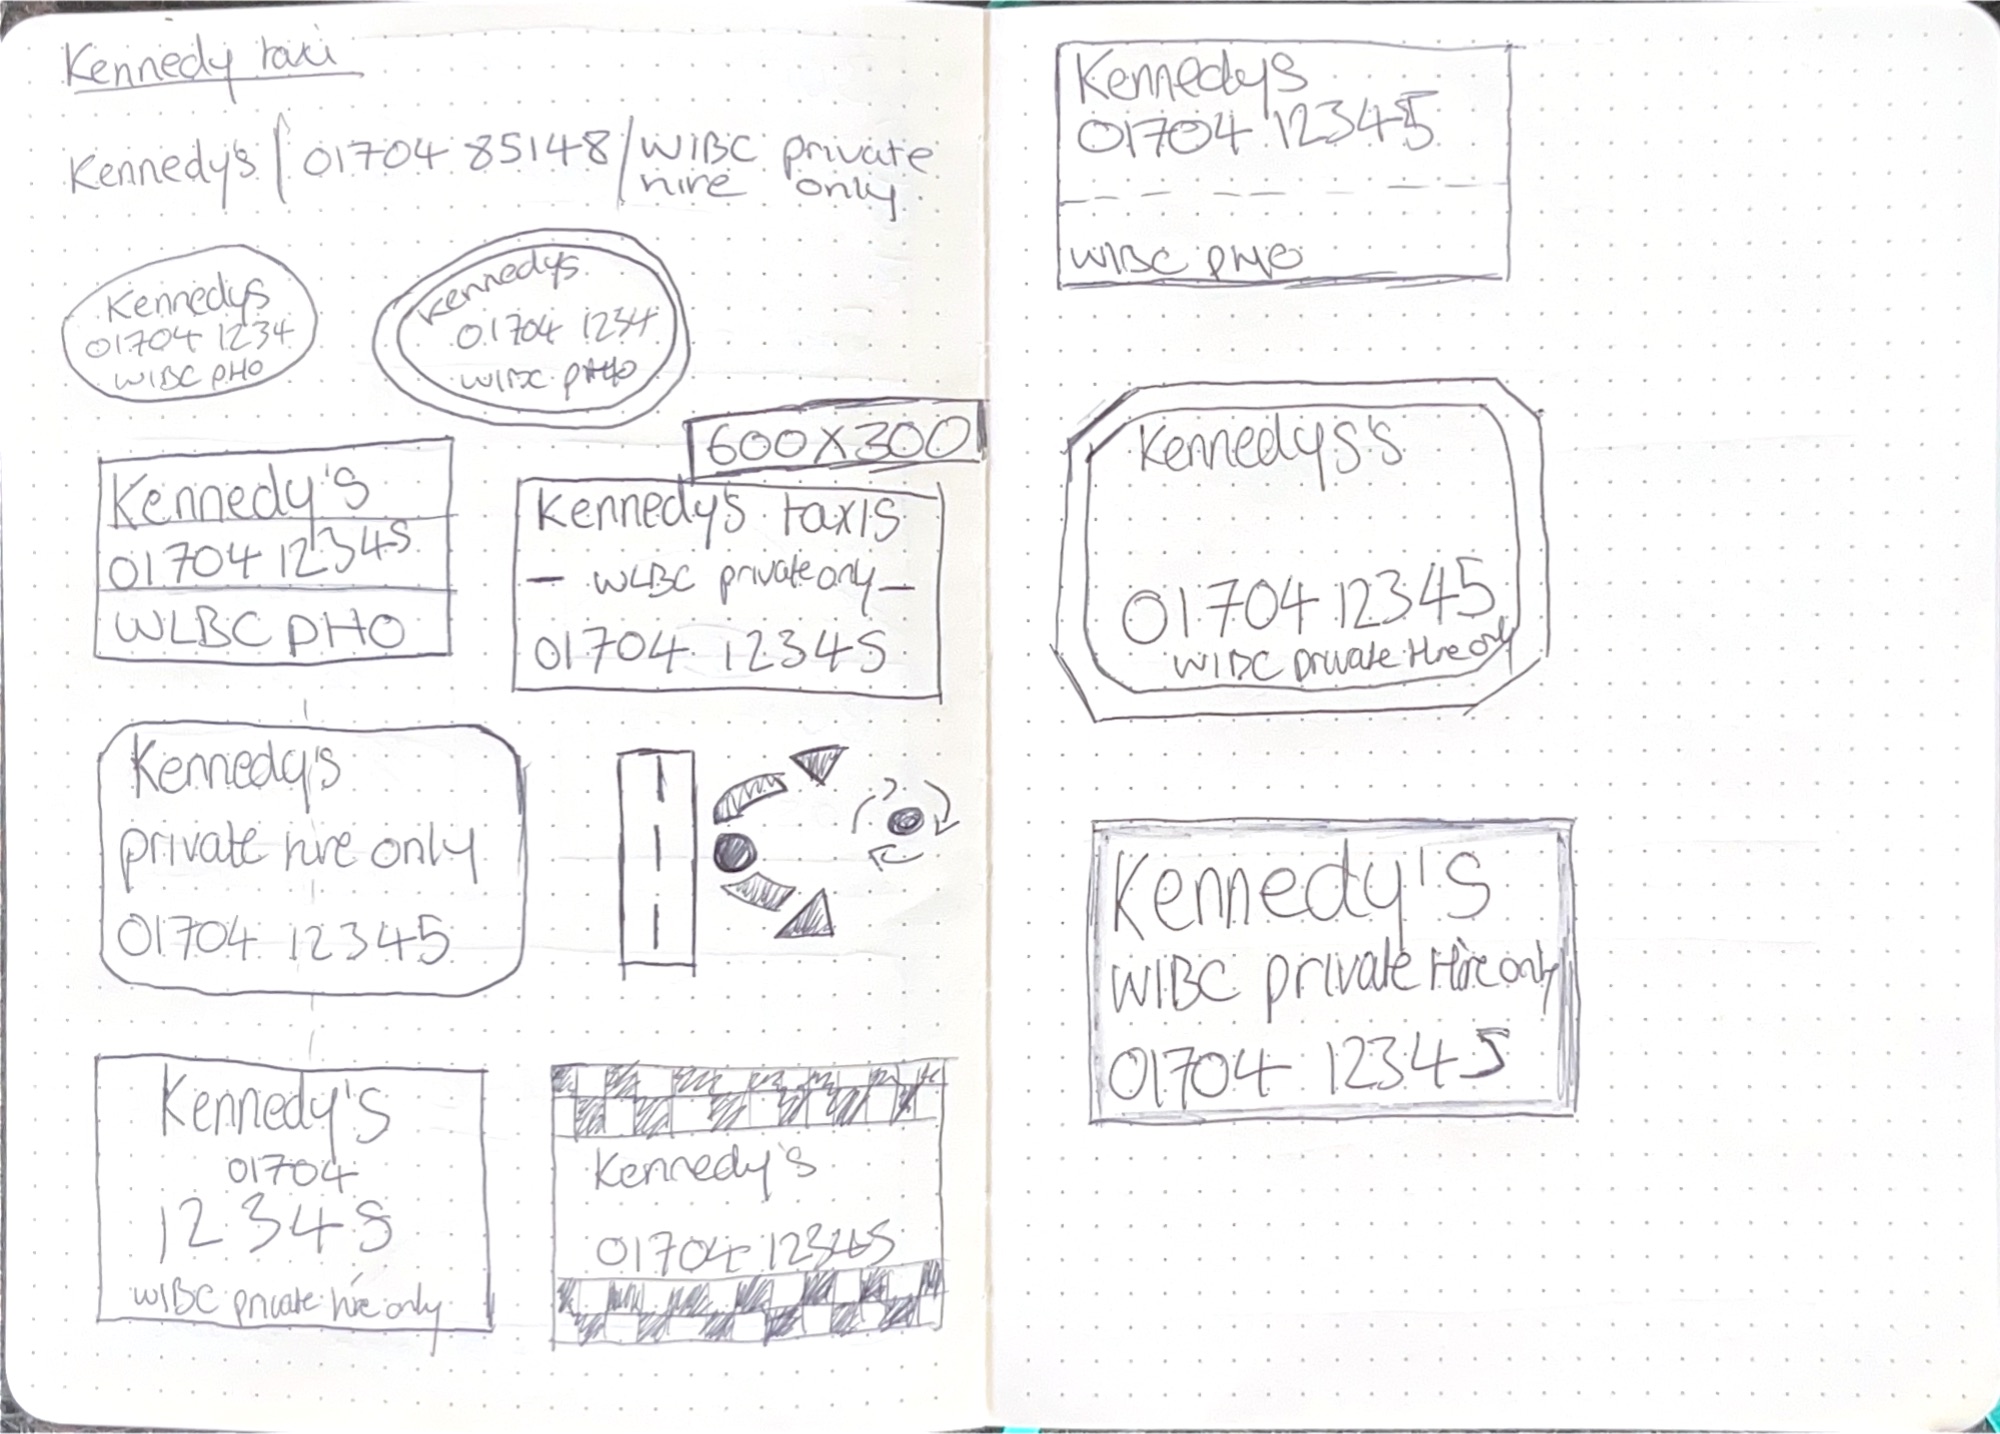 Kennedy taxi
Kennedy's / 01704 85148 / WlBC private
hire only
Kennedys
01704 1234
WlBC PHO
Kennedys
01704 1234
WlBC PHO
600X300
Kennedy's
01704 12345
WLBC PHO
Kennedy's taxis
– WLBC private only –
01704 12345
Kennedy's
private hire only
01704 12345
Kennedy's
01704
12345
WlBC private hire only
Kennedy's
01704 12345
Kennedys
01704 12345
WlBC PHO
Kennedys's
01704 12345
WlBC private Hire only
Kennedy's
WlBC private Hire only
01704 12345